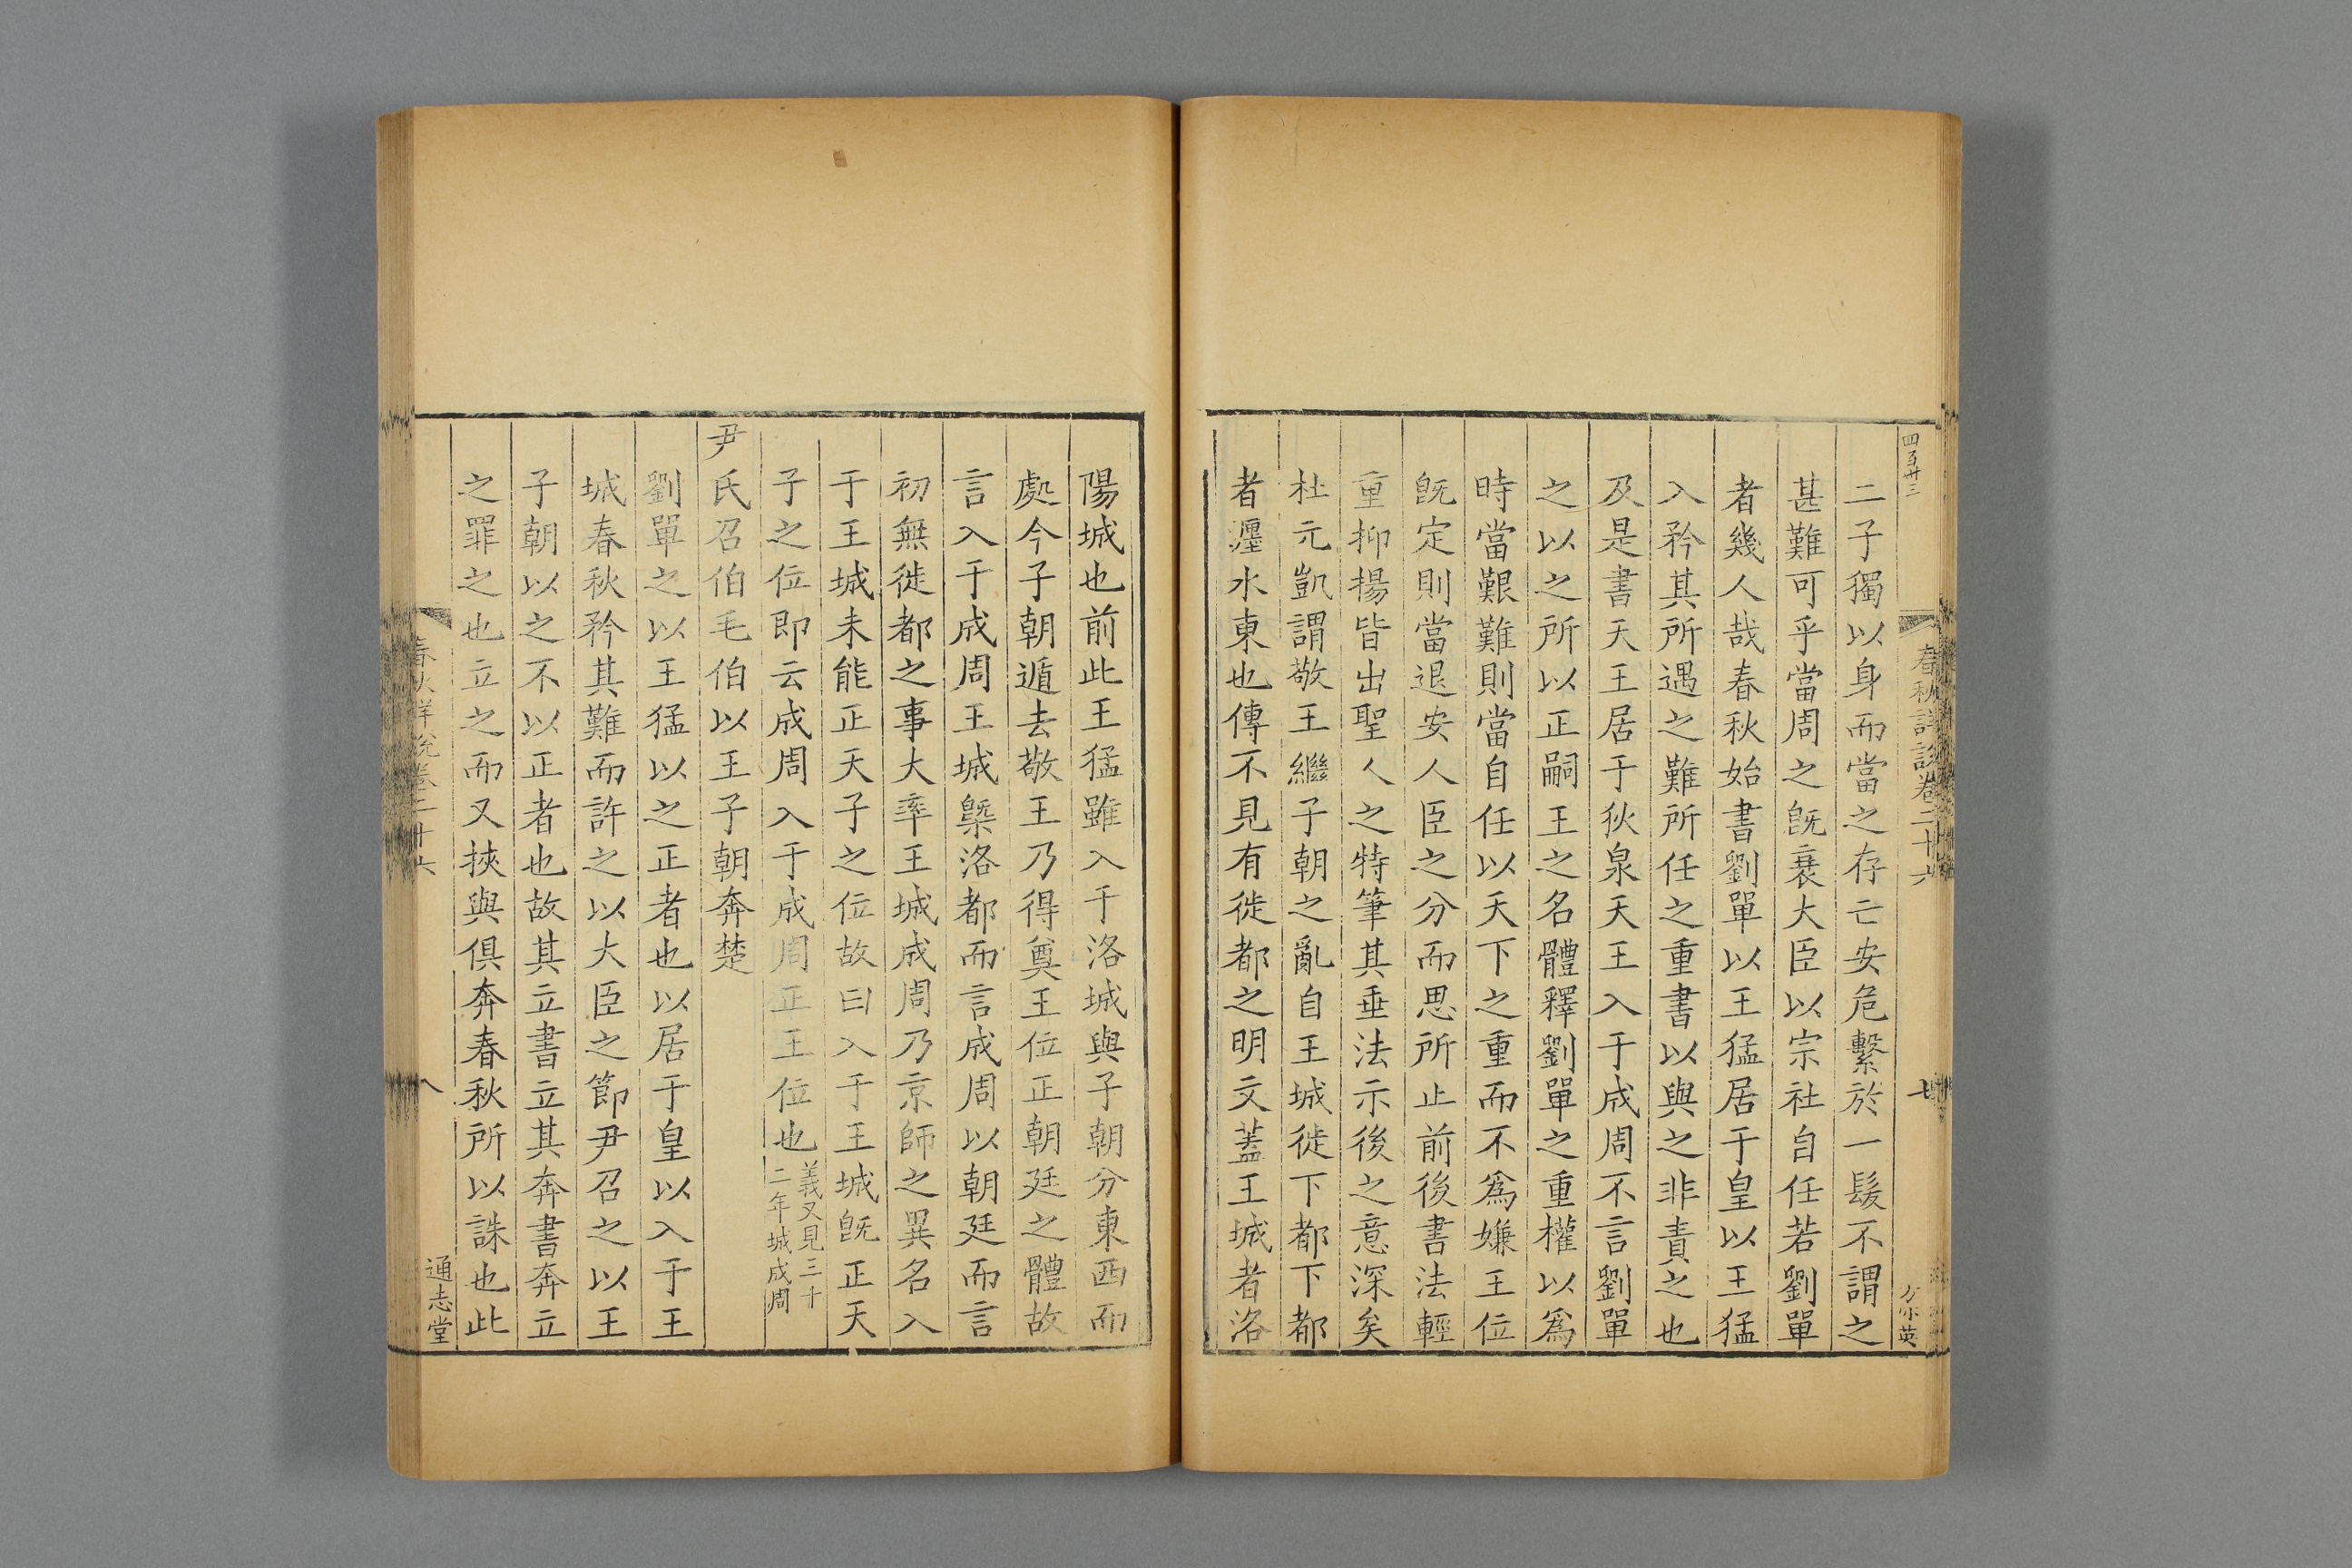 四百卅三
春秋詳說卷二十六
七
二子獨以身而當之存亡安危繫於一髮不謂之
甚難可乎當周之旣衰大臣以宗社自任若劉單
者幾人哉春秋始書劉單以王猛居于皇以王猛
入矜其所遇之難所任之重書以與之非責之也
及是書天王居于狄泉天王入于成周不言劉單
之以之所以正嗣王之名體釋劉單之重權以爲
時當艱難則當自任以天下之重而不爲嫌王位
旣定則當退安人臣之分而思所止前後書法輕
重抑揚皆出聖人之特筆其垂法示後之意深矣
杜元凱謂敬王繼子朝之亂自王城徙下都下都
者瀍水東也傳不見有徙都之明文蓋王城者洛
陽城也前此王猛雖入于洛城與子朝分東西而
處今子朝遁去敬王乃得奠王位正朝廷之體故
言入于成周王城槩洛都而言成周以朝廷而言
初無徙都之事大率王城成周乃京師之異名入
于王城未能正天子之位故曰入于王城旣正天
子之位即云成周入于成周正王位也義又見三十
二年城成周
尹氏召伯毛伯以王子朝奔楚
劉單之以王猛以之正者也以居于皇以入于王
城春秋矜其難而許之以大臣之節尹召之以王
子朝以之不以正者也故其立書立其奔書奔立
之罪之也立之而又挾與俱奔春秋所以誅也此
春秋詳說卷二十六
八
通志堂